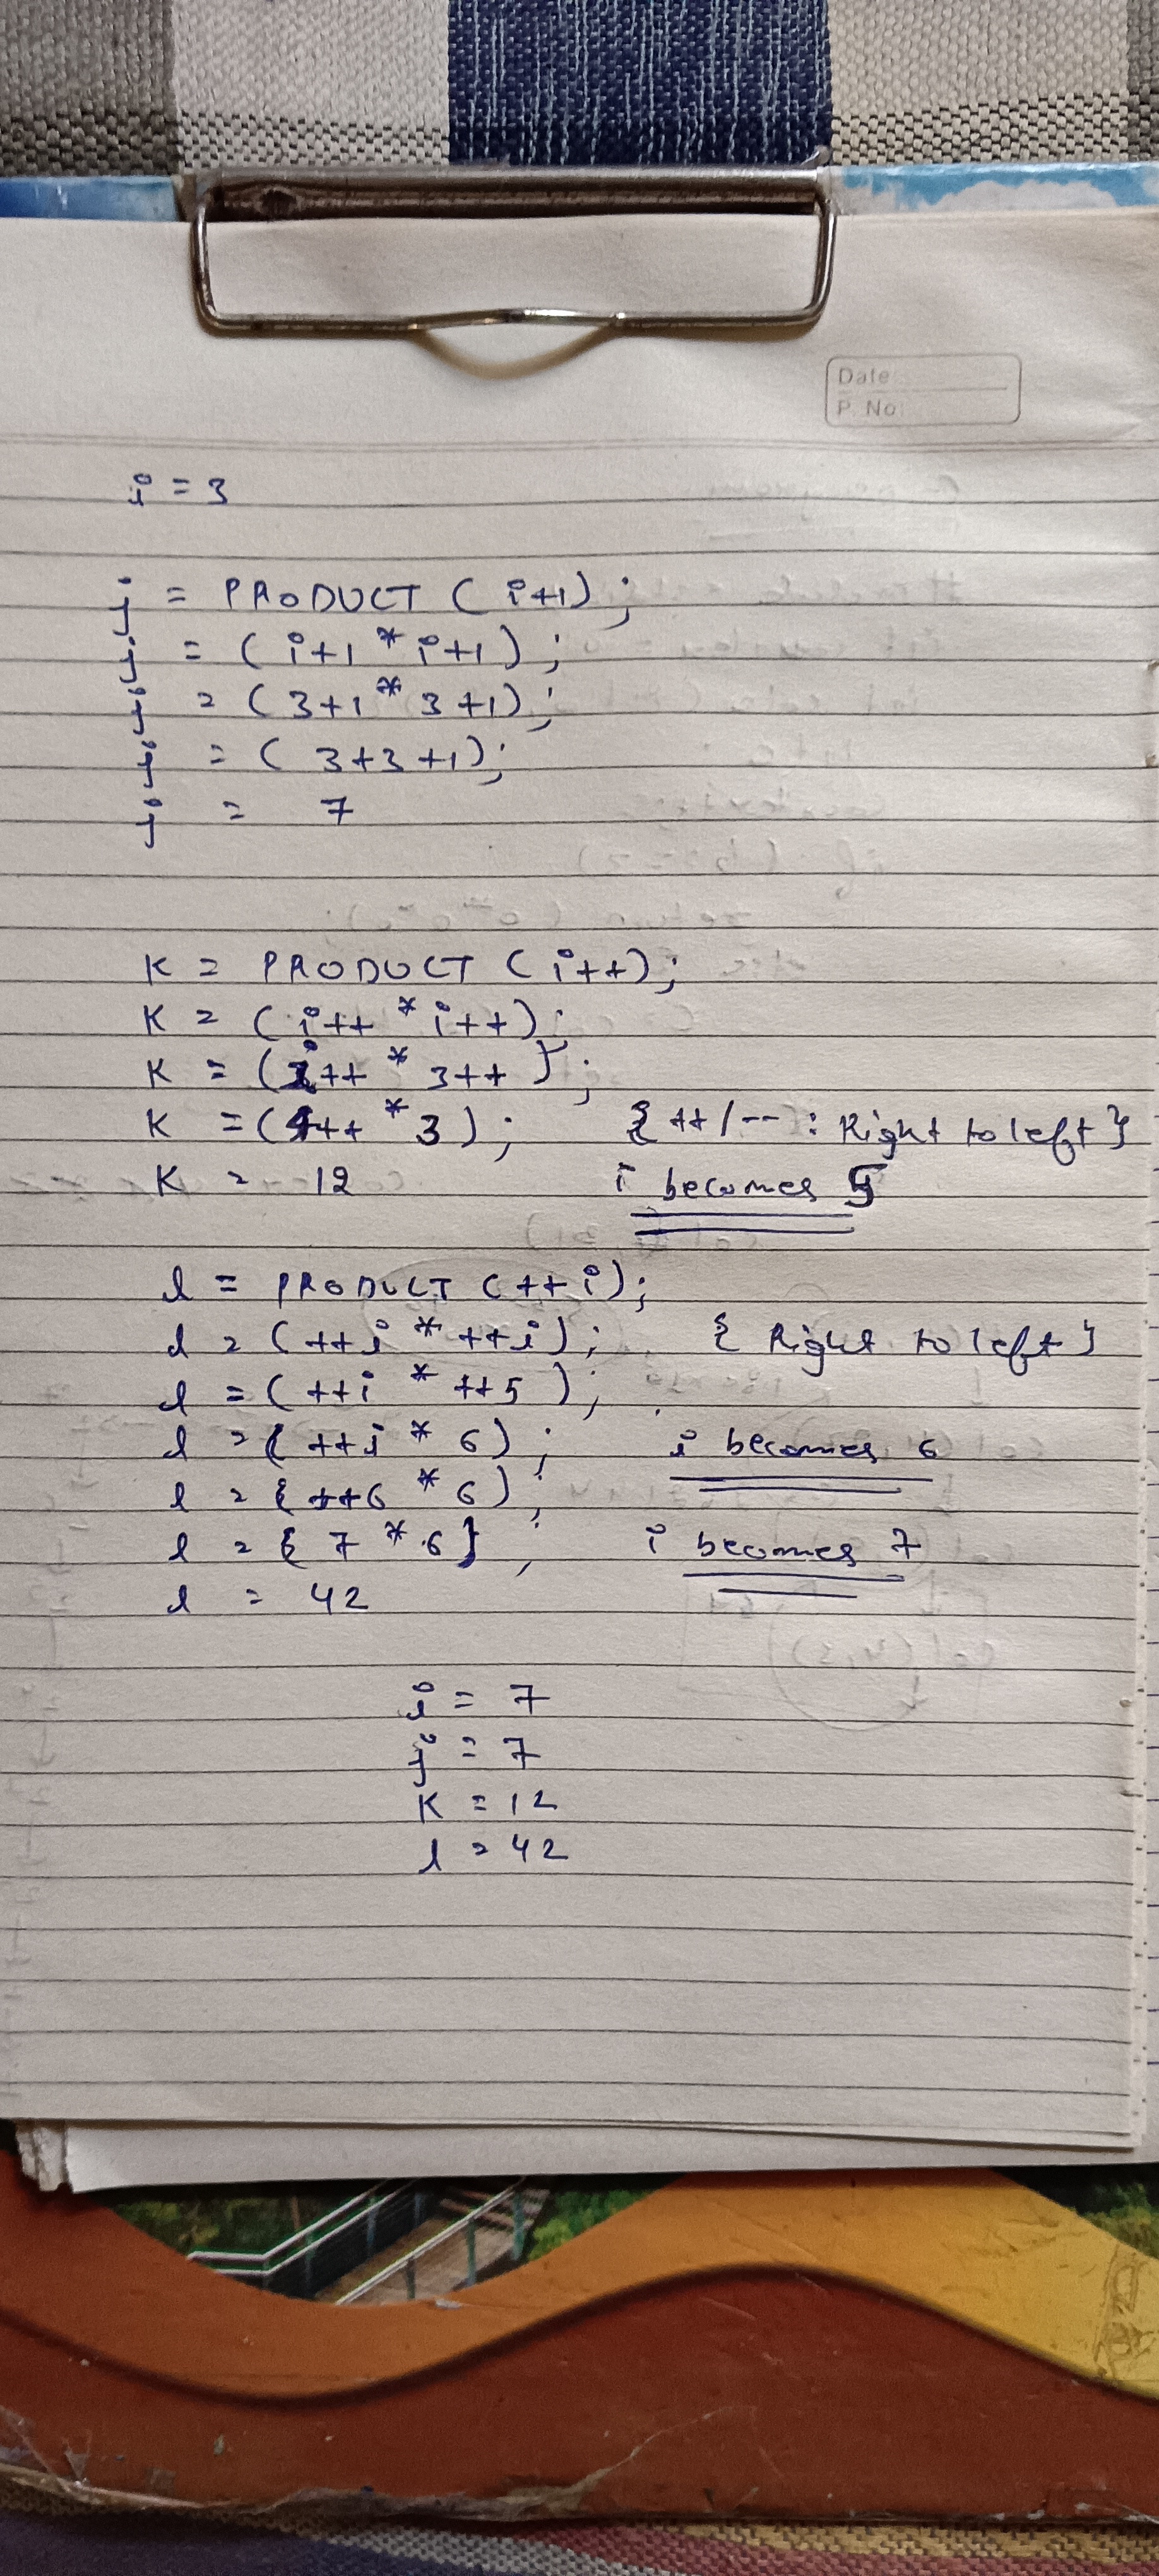 Date
P. No.
i = 3
j = PRODUCT ( i+1 );
j = ( i+1 * i+1 );
j = ( 3+1 * 3+1 );
j = ( 3+3+1 );
j = 7
K = PRODUCT ( i++ );
K = ( i++ * i++ );
K = ( i++ * 3++ );
K = ( 4++ * 3 ); { ++/-- : Right to left }
K = 12 i becomes 5
l = PRODUCT ( ++i );
l = ( ++i * ++i ); { Right to left }
l = ( ++i * ++5 );
l = ( ++i * 6 ); i becomes 6
l = { ++6 * 6 );
l = { 7 * 6 } ; i becomes 7
l = 42
i = 7
j = 7
K = 12
l = 42